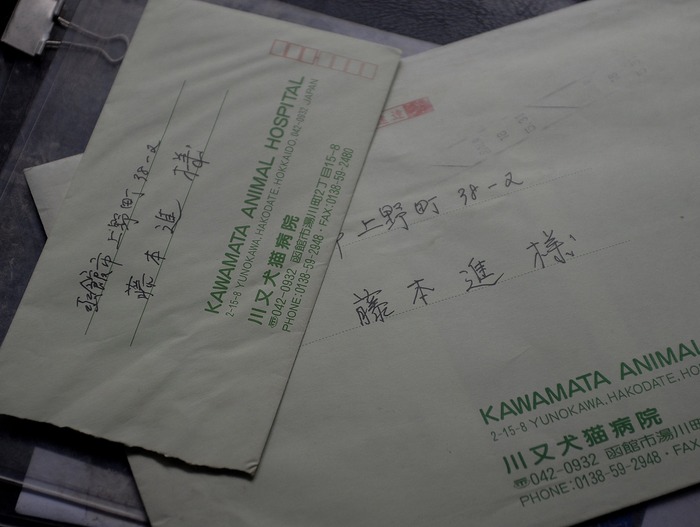 函館市上野町38-2
藤本進様
KAWAMATA ANIMAL HOSPITAL
2-15-8 YUNOKAWA, HAKODATE, HOKKAIDO, 042-0932 JAPAN
川又犬猫病院
〒042-0932 函館市湯川町2丁目15-8
PHONE:0138-59-2948・FAX:0138-59-2480
上野町 38-2
藤本進様
KAWAMATA ANIMAL
2-15-8 YUNOKAWA, HAKODATE, HO
川又犬猫病院
〒042-0932 函館市湯川町
PHONE:0138-59-2948・FAX